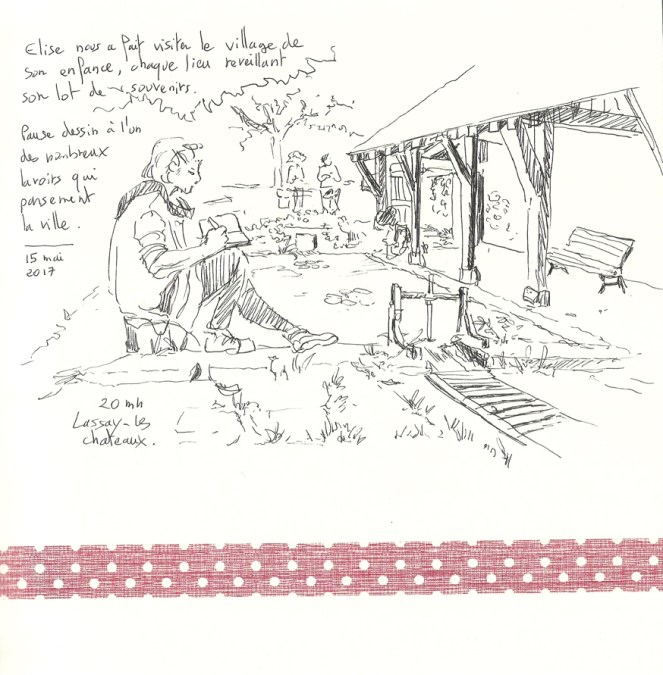 Elise nous a fait visiter le village de
son enfance, chaque lieu reveillant
son lot de souvenirs.
Pause dessin à l'un
des nombreux
lavoirs qui
parsement
la ville.
15 mai
2017
20 mn
Lassay-les
chateaux.